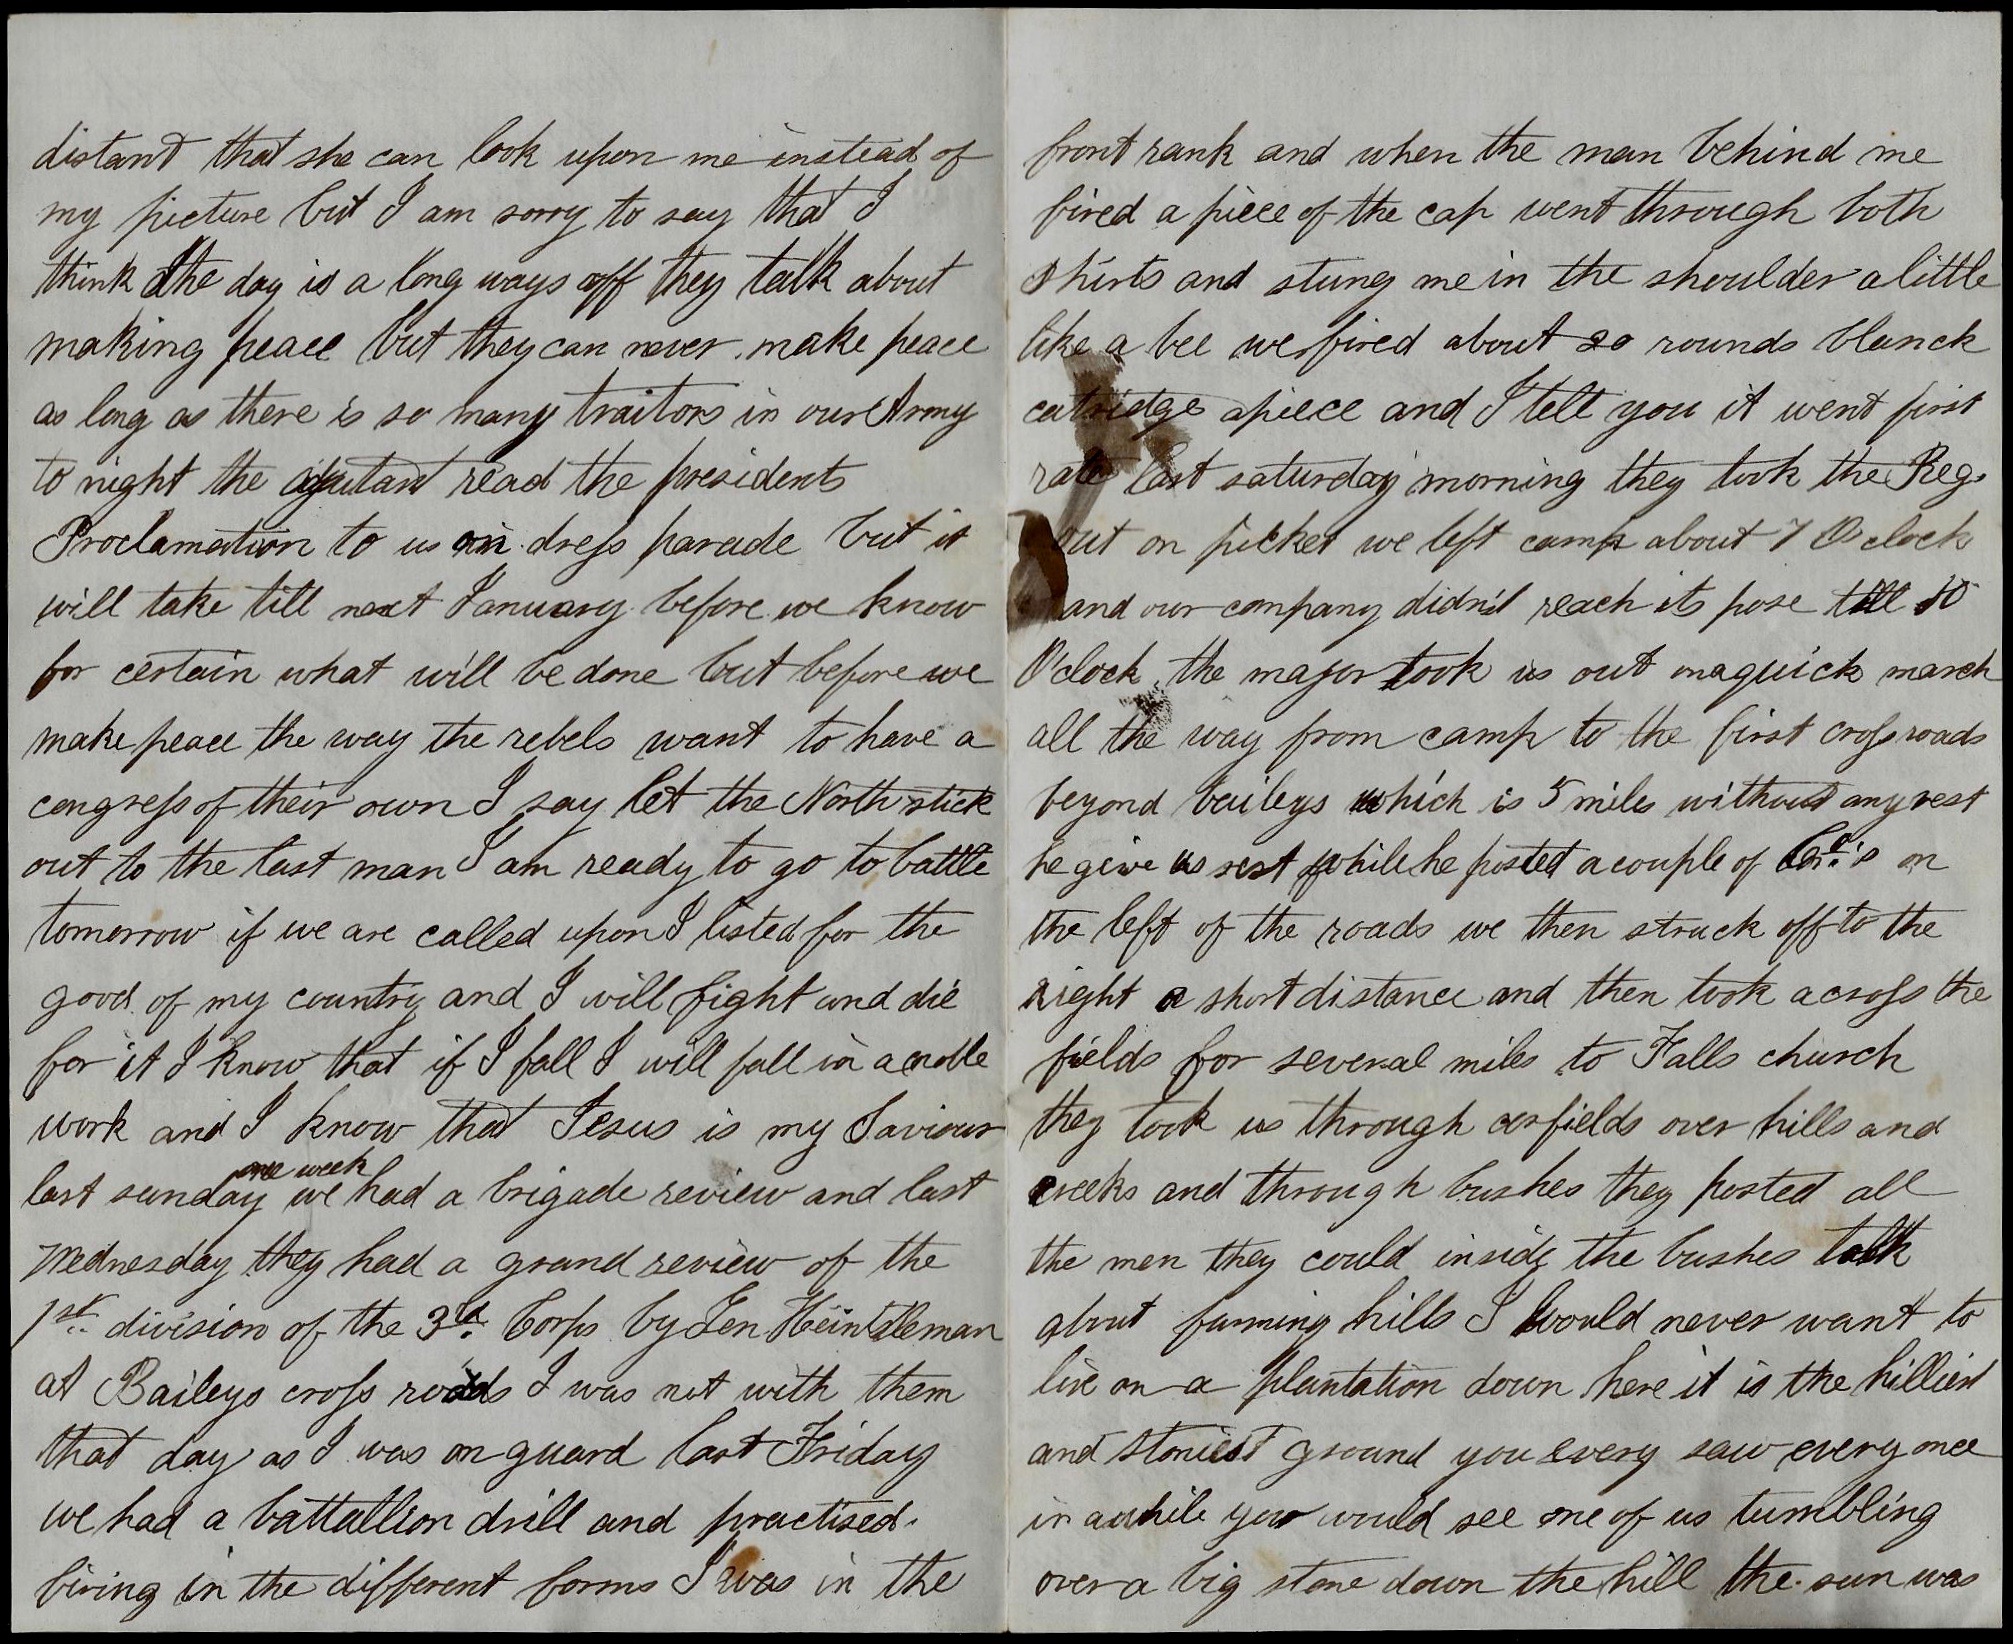 distant that she can look upon me instead of
my picture but I am sorry to say that I
think the day is a long ways off they talk about
making peace but they can never make peace
as long as there is so many traitors in our Army
to night the ajutant read the presidents
Proclamation to us on dress parade but it
will take till next January before we know
for certain what will be done but before we
make peace the way the rebels want to have a
congress of their own I say let the North stick
out to the last man I am ready to go to battle
tomorrow if we are called upon I listed for the
good of my country and I will fight and die
for it I know that if I fall I will fall in a noble
work and I know that Jesus is my Saviour
one week
last sunday we had a brigade review and last
Wednesday they had a grand review of the
1st division of the 3d Corps by Gen Heintzleman
at Baileys cross roads I was not with them
that day as I was on guard last Friday
we had a battallion drill and practised
firing in the different forms I was in the
front rank and when the man behind me
fired a piece of the cap went through both
shirts and stung me in the shoulder a little
like a bee we fired about 20 rounds blanck
catridge apiece and I tell you it went first
rate last saturday morning they took the Reg.
out on picket we left camp about 7 O'clock
and our company didn't reach its pose till 10
O'clock the major took us out on a quick march
all the way from camp to the first cross roads
beyond baileys which is 5 miles without any rest
he give us rest while he posted a couple of Co.'s on
the left of the roads we then struck off to the
right a short distance and then took across the
fields for several miles to Falls church
they took us through cornfields over hills and
creeks and through bushes they posted all
the men they could inside the bushes talk
about farming hills I would never want to
live on a plantation down here it is the hilliest
and stoniest ground you every saw every once
in awhile you would see one of us tumbling
over a big stone down the hill the sun was